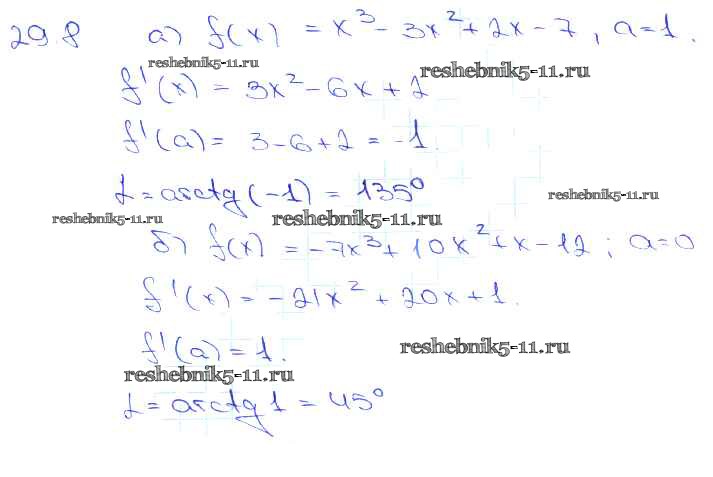 29.8 а) f(x) = x³ - 3x² + 2x - 7, a=1.
reshebnik5-11.ru reshebnik5-11.ru
f'(x) = 3x² - 6x + 2
f'(a) = 3 - 6 + 2 = -1.
L = arctg(-1) = 135°
reshebnik5-11.ru
reshebnik5-11.ru reshebnik5-11.ru
б) f(x) = -7x³ + 10x² + x - 12; a=0
f'(x) = -21x² + 20x + 1.
f'(a) = 1.
reshebnik5-11.ru
reshebnik5-11.ru
L = arctg 1 = 45°